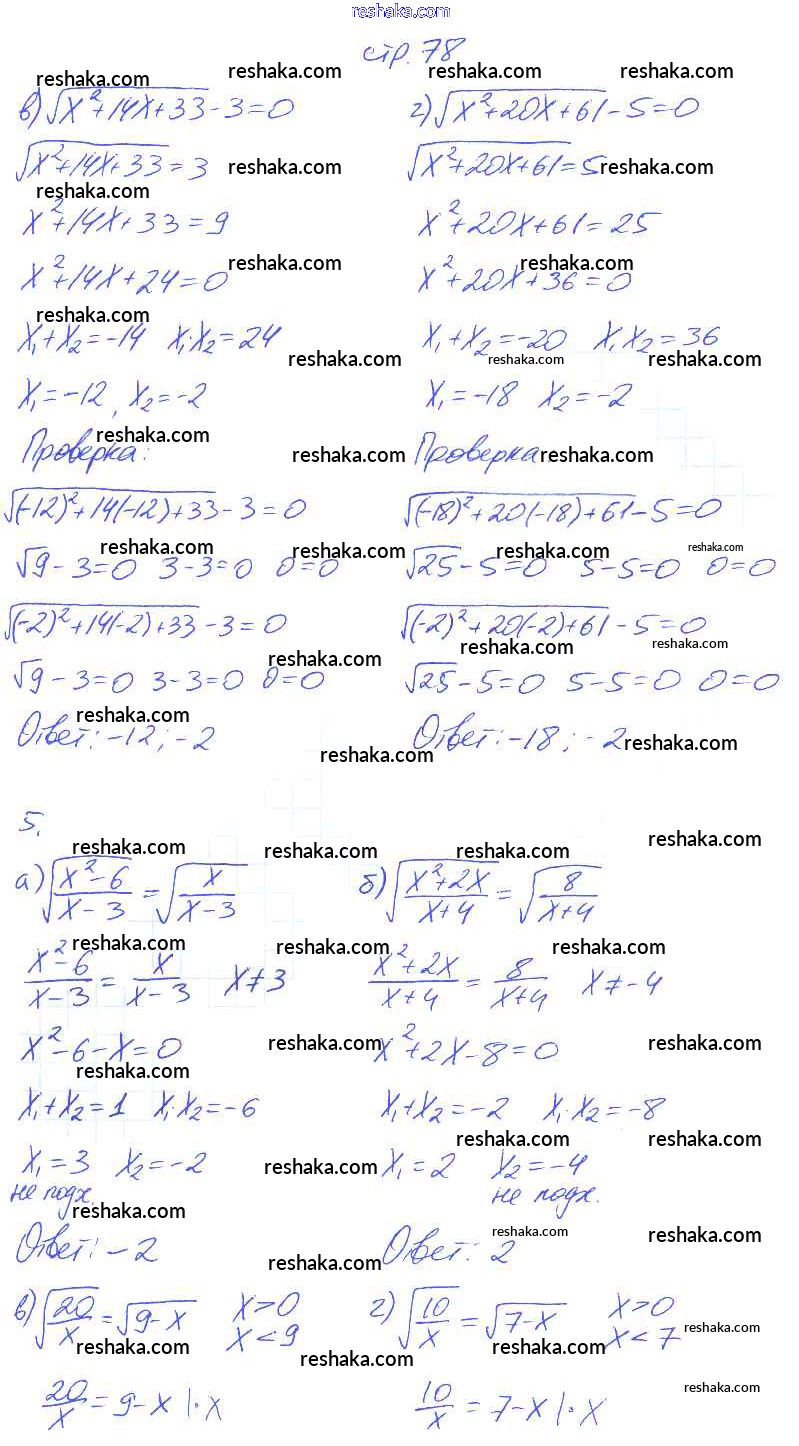 www.gdz.com
стр. 78
в) √(x²+14x+33) - 3 = 0
√(x²+14x+33) = 3
x²+14x+33 = 9
x²+14x+24 = 0
x₁+x₂ = -14 x₁·x₂ = 24
x₁ = -12, x₂ = -2
Проверка:
√((-12)²+14(-12)+33) - 3 = 0
√9 - 3 = 0 3-3=0 0=0
√((-2)²+14(-2)+33) - 3 = 0
√9 - 3 = 0 3-3=0 0=0
Ответ: -12; -2
г) √(x²+20x+61) - 5 = 0
√(x²+20x+61) = 5
x²+20x+61 = 25
x²+20x+36 = 0
x₁+x₂ = -20 x₁x₂ = 36
x₁ = -18 x₂ = -2
Проверка
√((-18)²+20(-18)+61) - 5 = 0
√25 - 5 = 0 5-5=0 0=0
√((-2)²+20(-2)+61) - 5 = 0
√25 - 5 = 0 5-5=0 0=0
Ответ: -18; -2
5.
а) √((x²-6)/(x-3)) = √(x/(x-3))
(x²-6)/(x-3) = x/(x-3) x≠3
x²-6-x = 0
x₁+x₂ = 1 x₁·x₂ = -6
x₁ = 3 x₂ = -2
не подх.
Ответ: -2
б) √((x²+2x)/(x+4)) = √(8/(x+4))
(x²+2x)/(x+4) = 8/(x+4) x≠-4
x²+2x-8 = 0
x₁+x₂ = -2 x₁·x₂ = -8
x₁ = 2 x₂ = -4
не подх.
Ответ: 2
в) √(20/x) = √(9-x) x>0
x<9
20/x = 9-x |·x
г) √(10/x) = √(7-x) x>0
x<7
10/x = 7-x |·x
reshaka.com